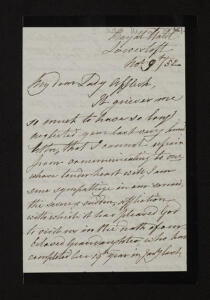 Royal Hotel
Lowestoft
Oct 9th/52
My dear Lady Affleck,
It grieves me
so much to have so long
neglected your last very kind
letter, that I cannot refrain
from communicating to one
whose tender heart will I am
sure sympathize in our sorrow,
the severe & sudden affliction
with which it has pleased God
to visit us in the death of our
beloved granddaughter who had
completed her 15th year in July last,